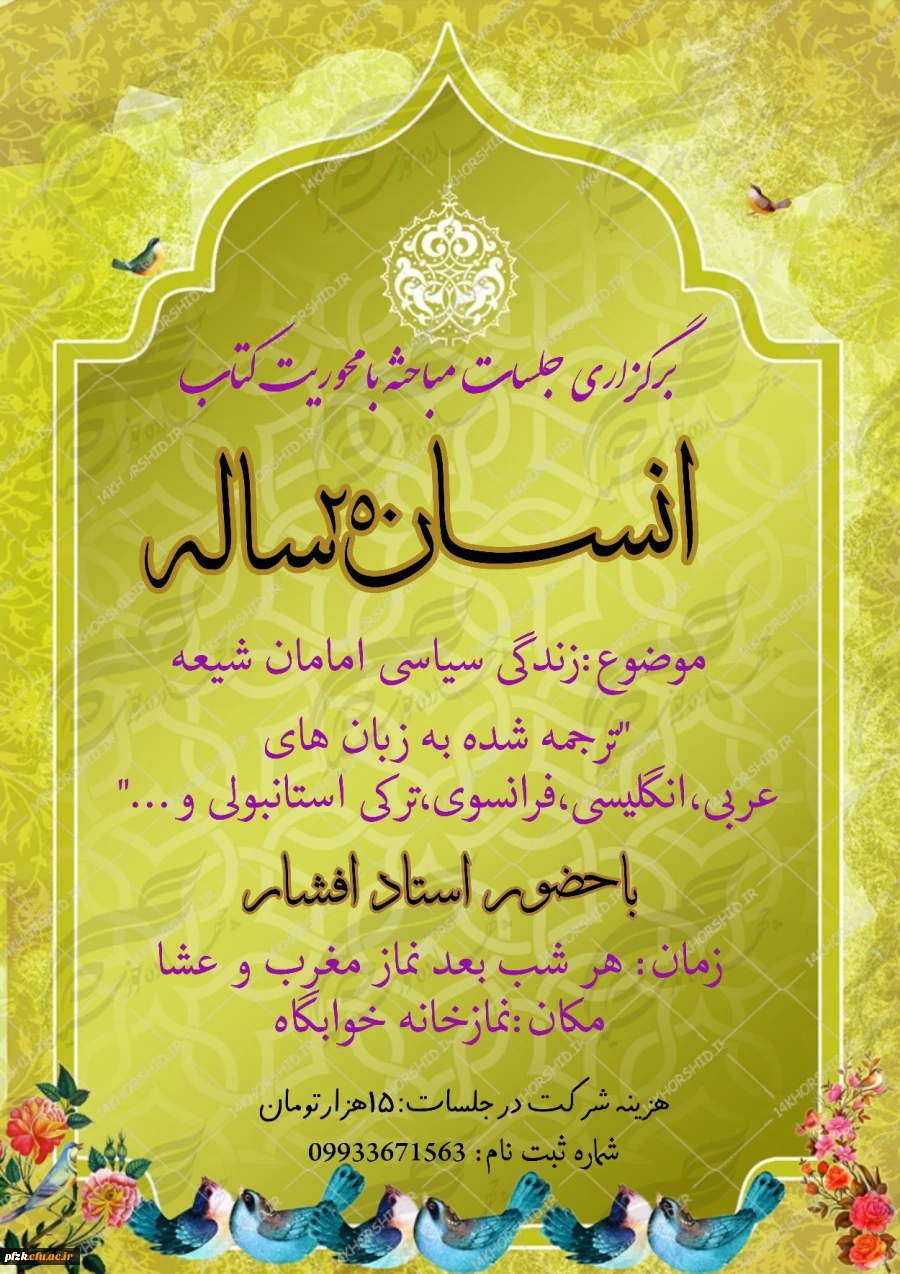 برگزاری جلسات مباحثه با محوریت کتاب
انسان ۲۵۰ ساله
موضوع:زندگی سیاسی امامان شیعه
"ترجمه شده به زبان های
عربی،انگلیسی،فرانسوی،ترکی استانبولی و ..."
باحضور استاد افشار
زمان: هر شب بعد نماز مغرب و عشا
مکان:نمازخانه خوابگاه
هزینه شرکت در جلسات:۱۵هزارتومان
شماره ثبت نام: 09933671563
pfzk.cfu.ac.ir
14KHORSHID.IR